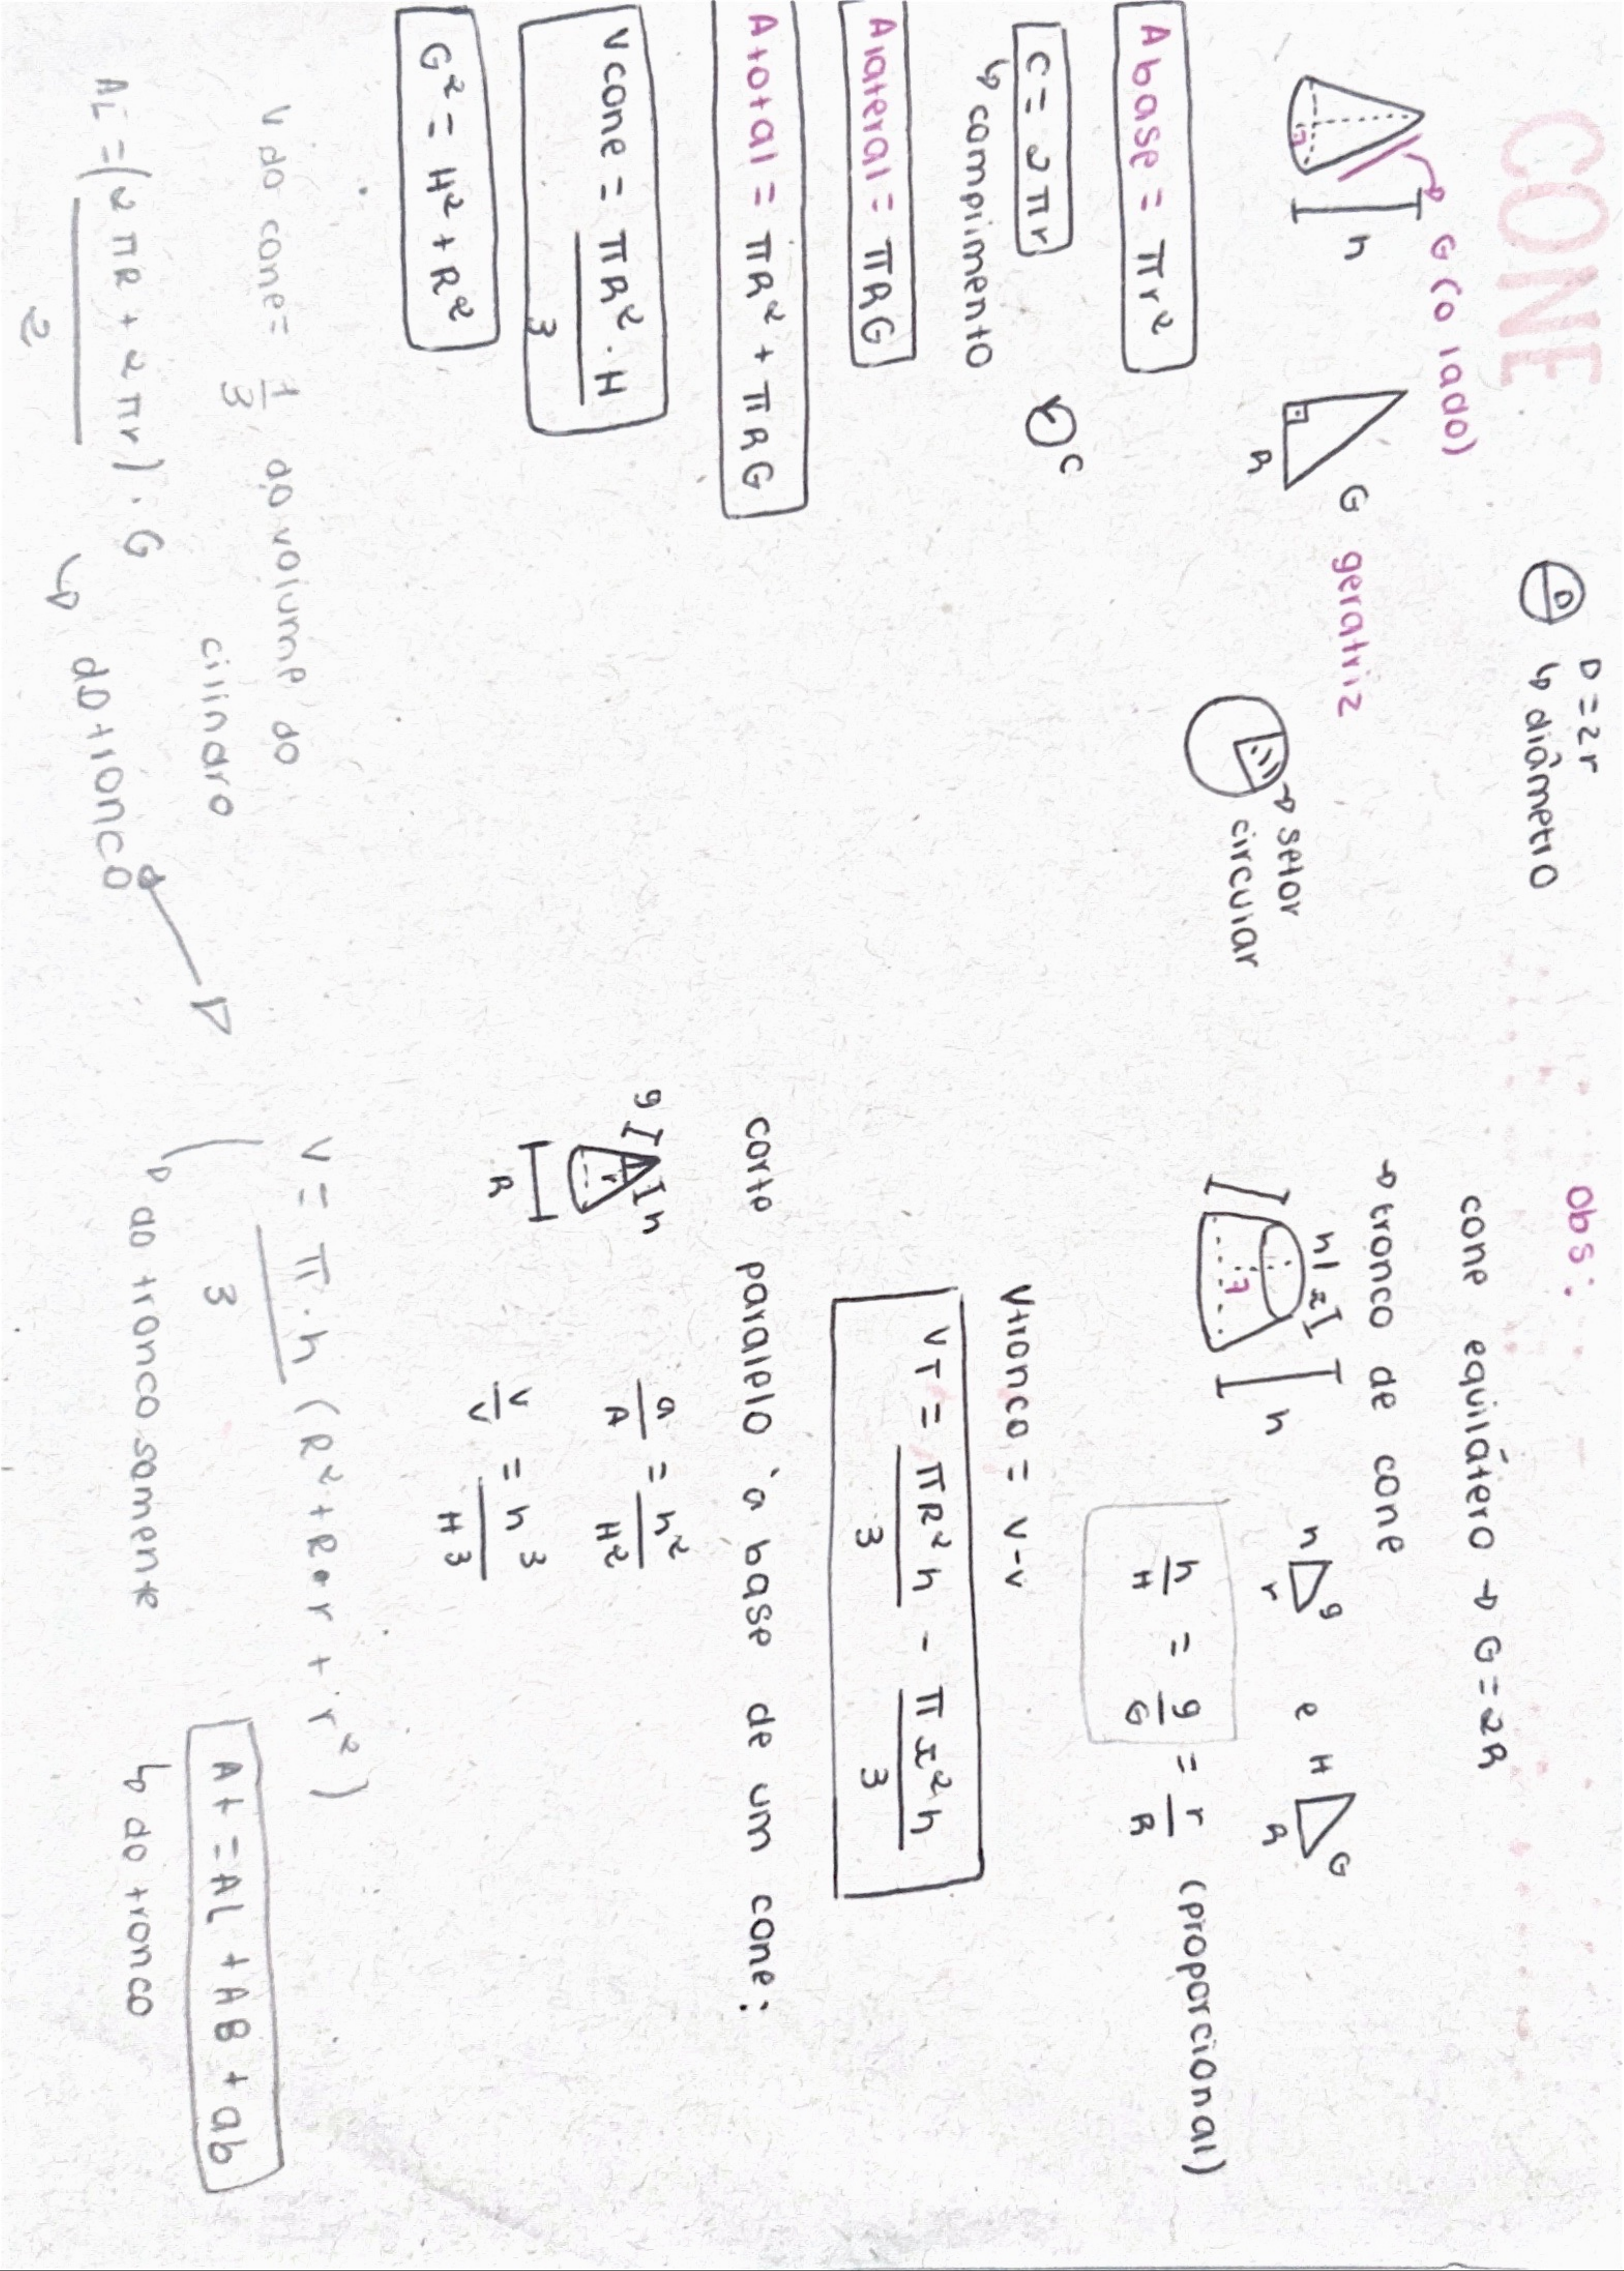 CONE
D = 2r
D
↳ diâmetro
G (o lado)
h
G geratriz
R
→ setor
circular
A base = πr²
C = 2πr
↳ compimento
C
A lateral = πRG
A total = πR² + πRG
V cone = πR² . H
3
G² = H² + R²
V do cone = 1/3 do volume do
cilindro
AL = (2πR + 2πr) . G
2
↳ do tronco
obs:
cone equilátero → G = 2R
→ tronco de cone
h
h r g e H R G
h/H = g/G = r/R (proparcional)
V tronco = V - v
VT = πR²h - πr²h
3 3
corte paralelo à base de um cone:
g h
r
R
a/A = h²/H²
v/V = h³/H³
V = π . h (R² + R • r + r²)
3
↳ do tronco somente
At = AL + AB + ab
↳ do tronco